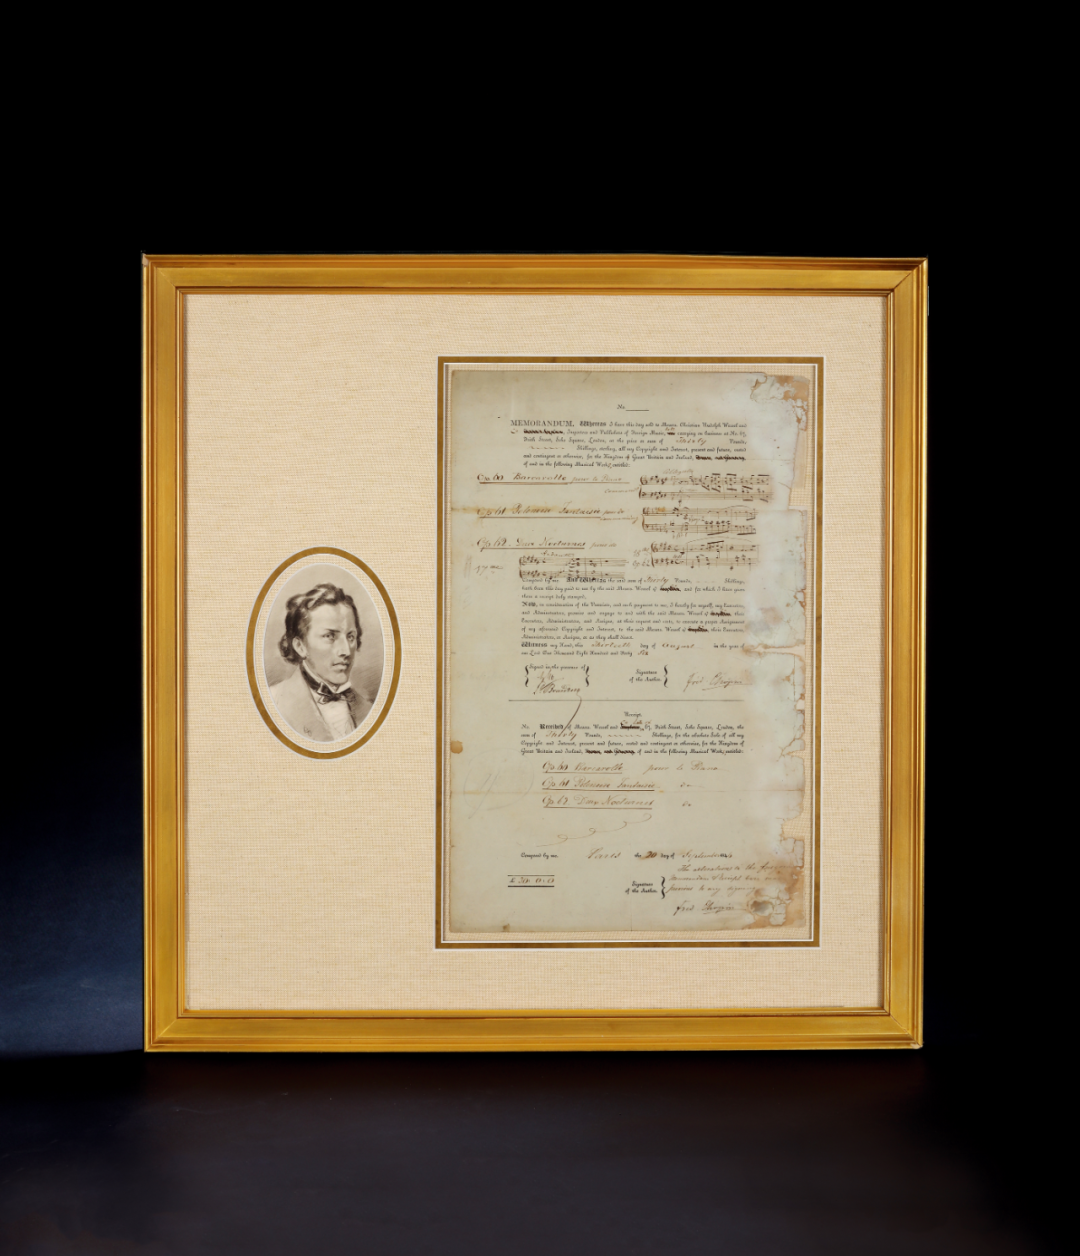 No
MEMORANDUM, Whereas I have this day sold to Messrs. Christian Rudolph Wessel and
Engravers and Publishers of Foreign Music, carrying on Business at No. 67,
Frith Street, Soho Square, London, at the price or sum of Thirty Pounds,
Shillings, sterling, all my Copyright and Interest, present and future, vested
and contingent or otherwise, for the Kingdom of Great Britain and Ireland,
of and in the following Musical Works, entitled:
Op. 60 Barcarolle pour le Piano
Op. 61 Polonaise Fantaisie pour
Op. 62 Deux Nocturnes pour
Composed by me. And Whereas the said sum of Thirty Pounds, Shillings,
hath been this day paid to me by the said Messrs. Wessel and for which I have given
them a receipt duly stamped.
Now, in consideration of the Premises, and such payment to me, I hereby for myself, my Executors,
and Administrators, promise and engage to and with the said Messrs. Wessel & their
Executors, Administrators, and Assigns, at their request and costs, to execute a proper Assignment
of my aforesaid Copyright and Interest, to the said Messrs. Wessel & their Executors,
Administrators, or Assigns, or as they shall direct.
Witness my Hand, this day of August in the year of
our Lord One Thousand Eight Hundred and Forty Six
Signed in the presence of
Signature
of the Author.
Fred Chopin
Receipt.
No. Received of Messrs. Wessel and Frith Street, Soho Square, London, the
sum of Thirty Pounds, Shillings, for the absolute Sale of all my
Copyright and Interest, present and future, vested and contingent or otherwise, for the Kingdom of
Great Britain and Ireland, of and in the following Musical Works, entitled:
Op. 60 Barcarolle pour le Piano
Op. 61 Polonaise Fantaisie do
Op. 62 Deux Nocturnes do
Composed by me. Paris the day of September
The alterations in the
Memorandum & Receipt
previous to any signing
Signature
of the Author.
Fred Chopin